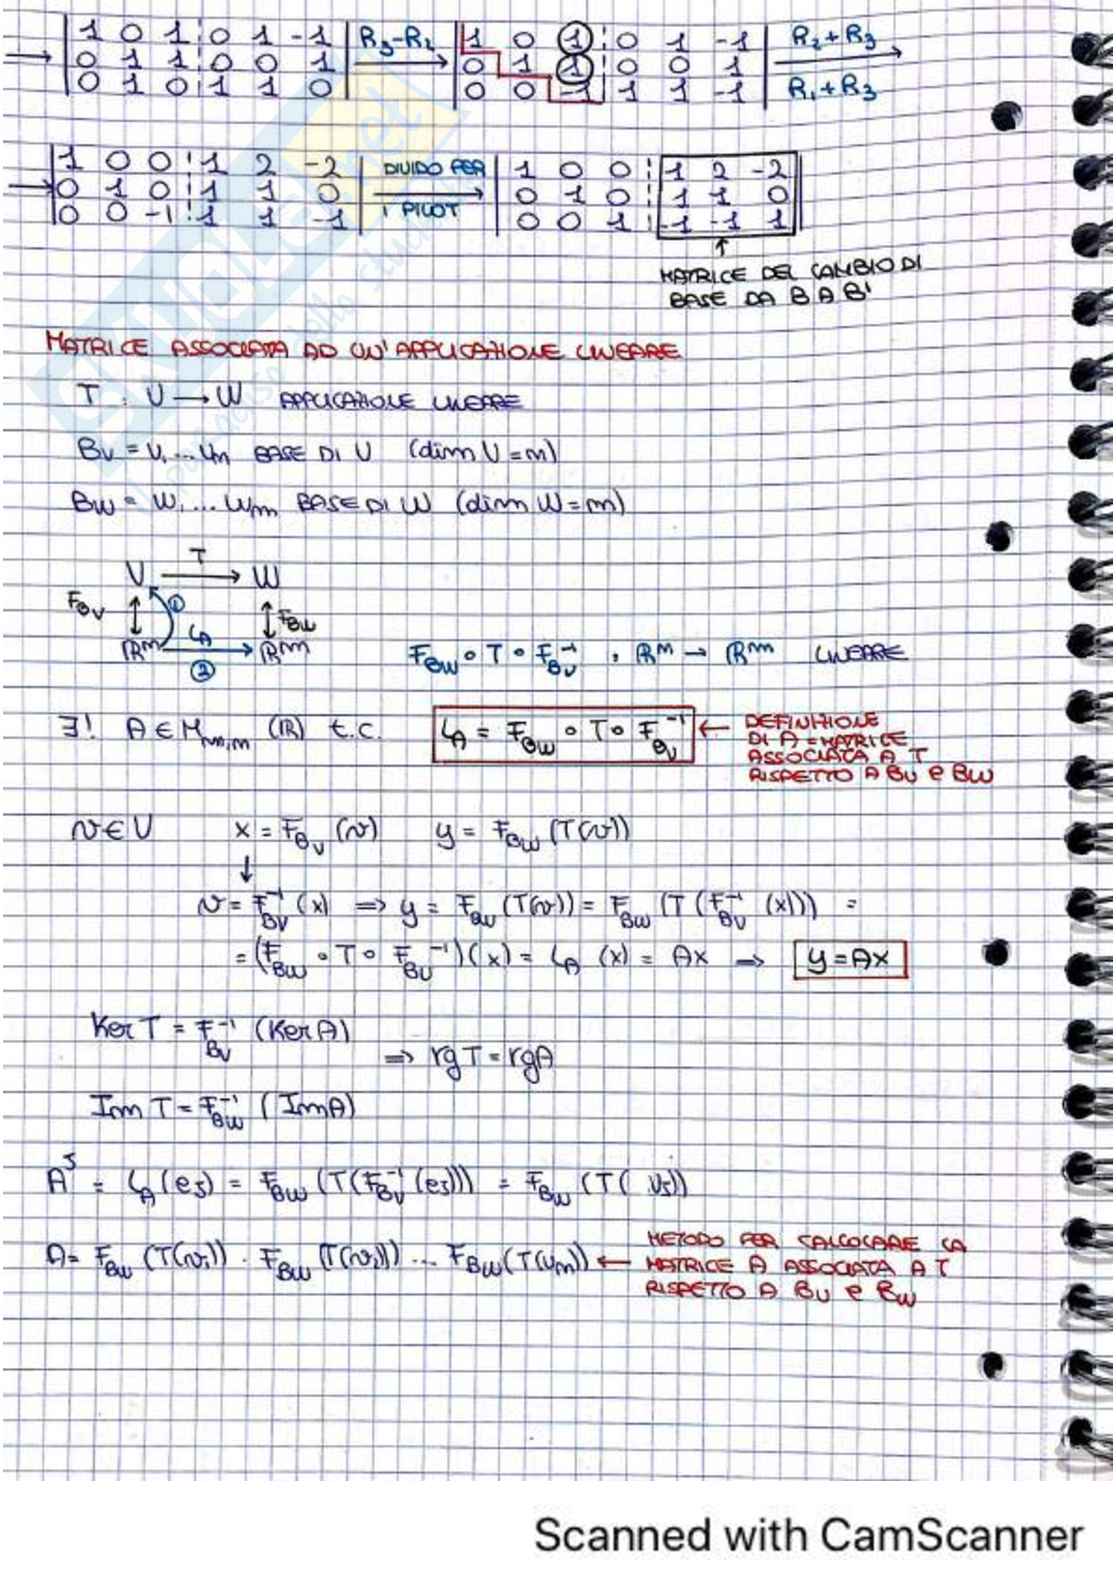 → | 1 0 1 ¦ 0 1 -1 | R3-R2 → | 1 0 1 ¦ 0 1 -1 | R2+R3 →
| 0 1 1 ¦ 0 0 1 | | 0 1 1 ¦ 0 0 1 | R1+R3
| 0 1 0 ¦ 1 1 0 | | 0 0 -1 ¦ 1 1 -1 |
→ | 1 0 0 ¦ 1 2 -2 | DIVIDO PER → | 1 0 0 ¦ 1 2 -2 |
| 0 1 0 ¦ 1 1 0 | I PIVOT | 0 1 0 ¦ 1 1 0 |
| 0 0 -1 ¦ 1 1 -1 | | 0 0 1 ¦ -1 -1 1 |
↑
MATRICE DEL CAMBIO DI
BASE DA B A B'
MATRICE ASSOCIATA AD UN'APPLICAZIONE LINEARE
T : V → W APPLICAZIONE LINEARE
Bv = v1 ... vn BASE DI V (dim V = n)
Bw = w1 ... wm BASE DI W (dim W = m)
V T → W
FBv ↕ ① ↕ FBw
Rⁿ LA → Rᵐ FBw ∘ T ∘ FBv⁻¹ : Rⁿ → Rᵐ LINEARE
②
∃! A ∈ Mm,n (R) t.c. LA = FBw ∘ T ∘ FBv⁻¹ ← DEFINIZIONE
DI A = MATRICE
ASSOCIATA A T
RISPETTO A Bv e Bw
v ∈ V x = FBv (v) y = FBw (T(v))
↓
v = FBv⁻¹ (x) ⇒ y = FBw (T(v)) = FBw (T (FBv⁻¹ (x))) =
= (FBw ∘ T ∘ FBv⁻¹)(x) = LA (x) = Ax ⇒ y = Ax
Ker T = FBv⁻¹ (Ker A)
⇒ rg T = rg A
Im T = FBw⁻¹ (Im A)
A^J = LA (eJ) = FBw (T(FBv⁻¹ (eJ))) = FBw (T( vJ))
A = FBw (T(v1)) . FBw (T(v2)) ... FBw (T(vn)) ← METODO PER CALCOLARE LA
MATRICE A ASSOCIATA A T
RISPETTO A Bv e Bw
Scanned with CamScanner